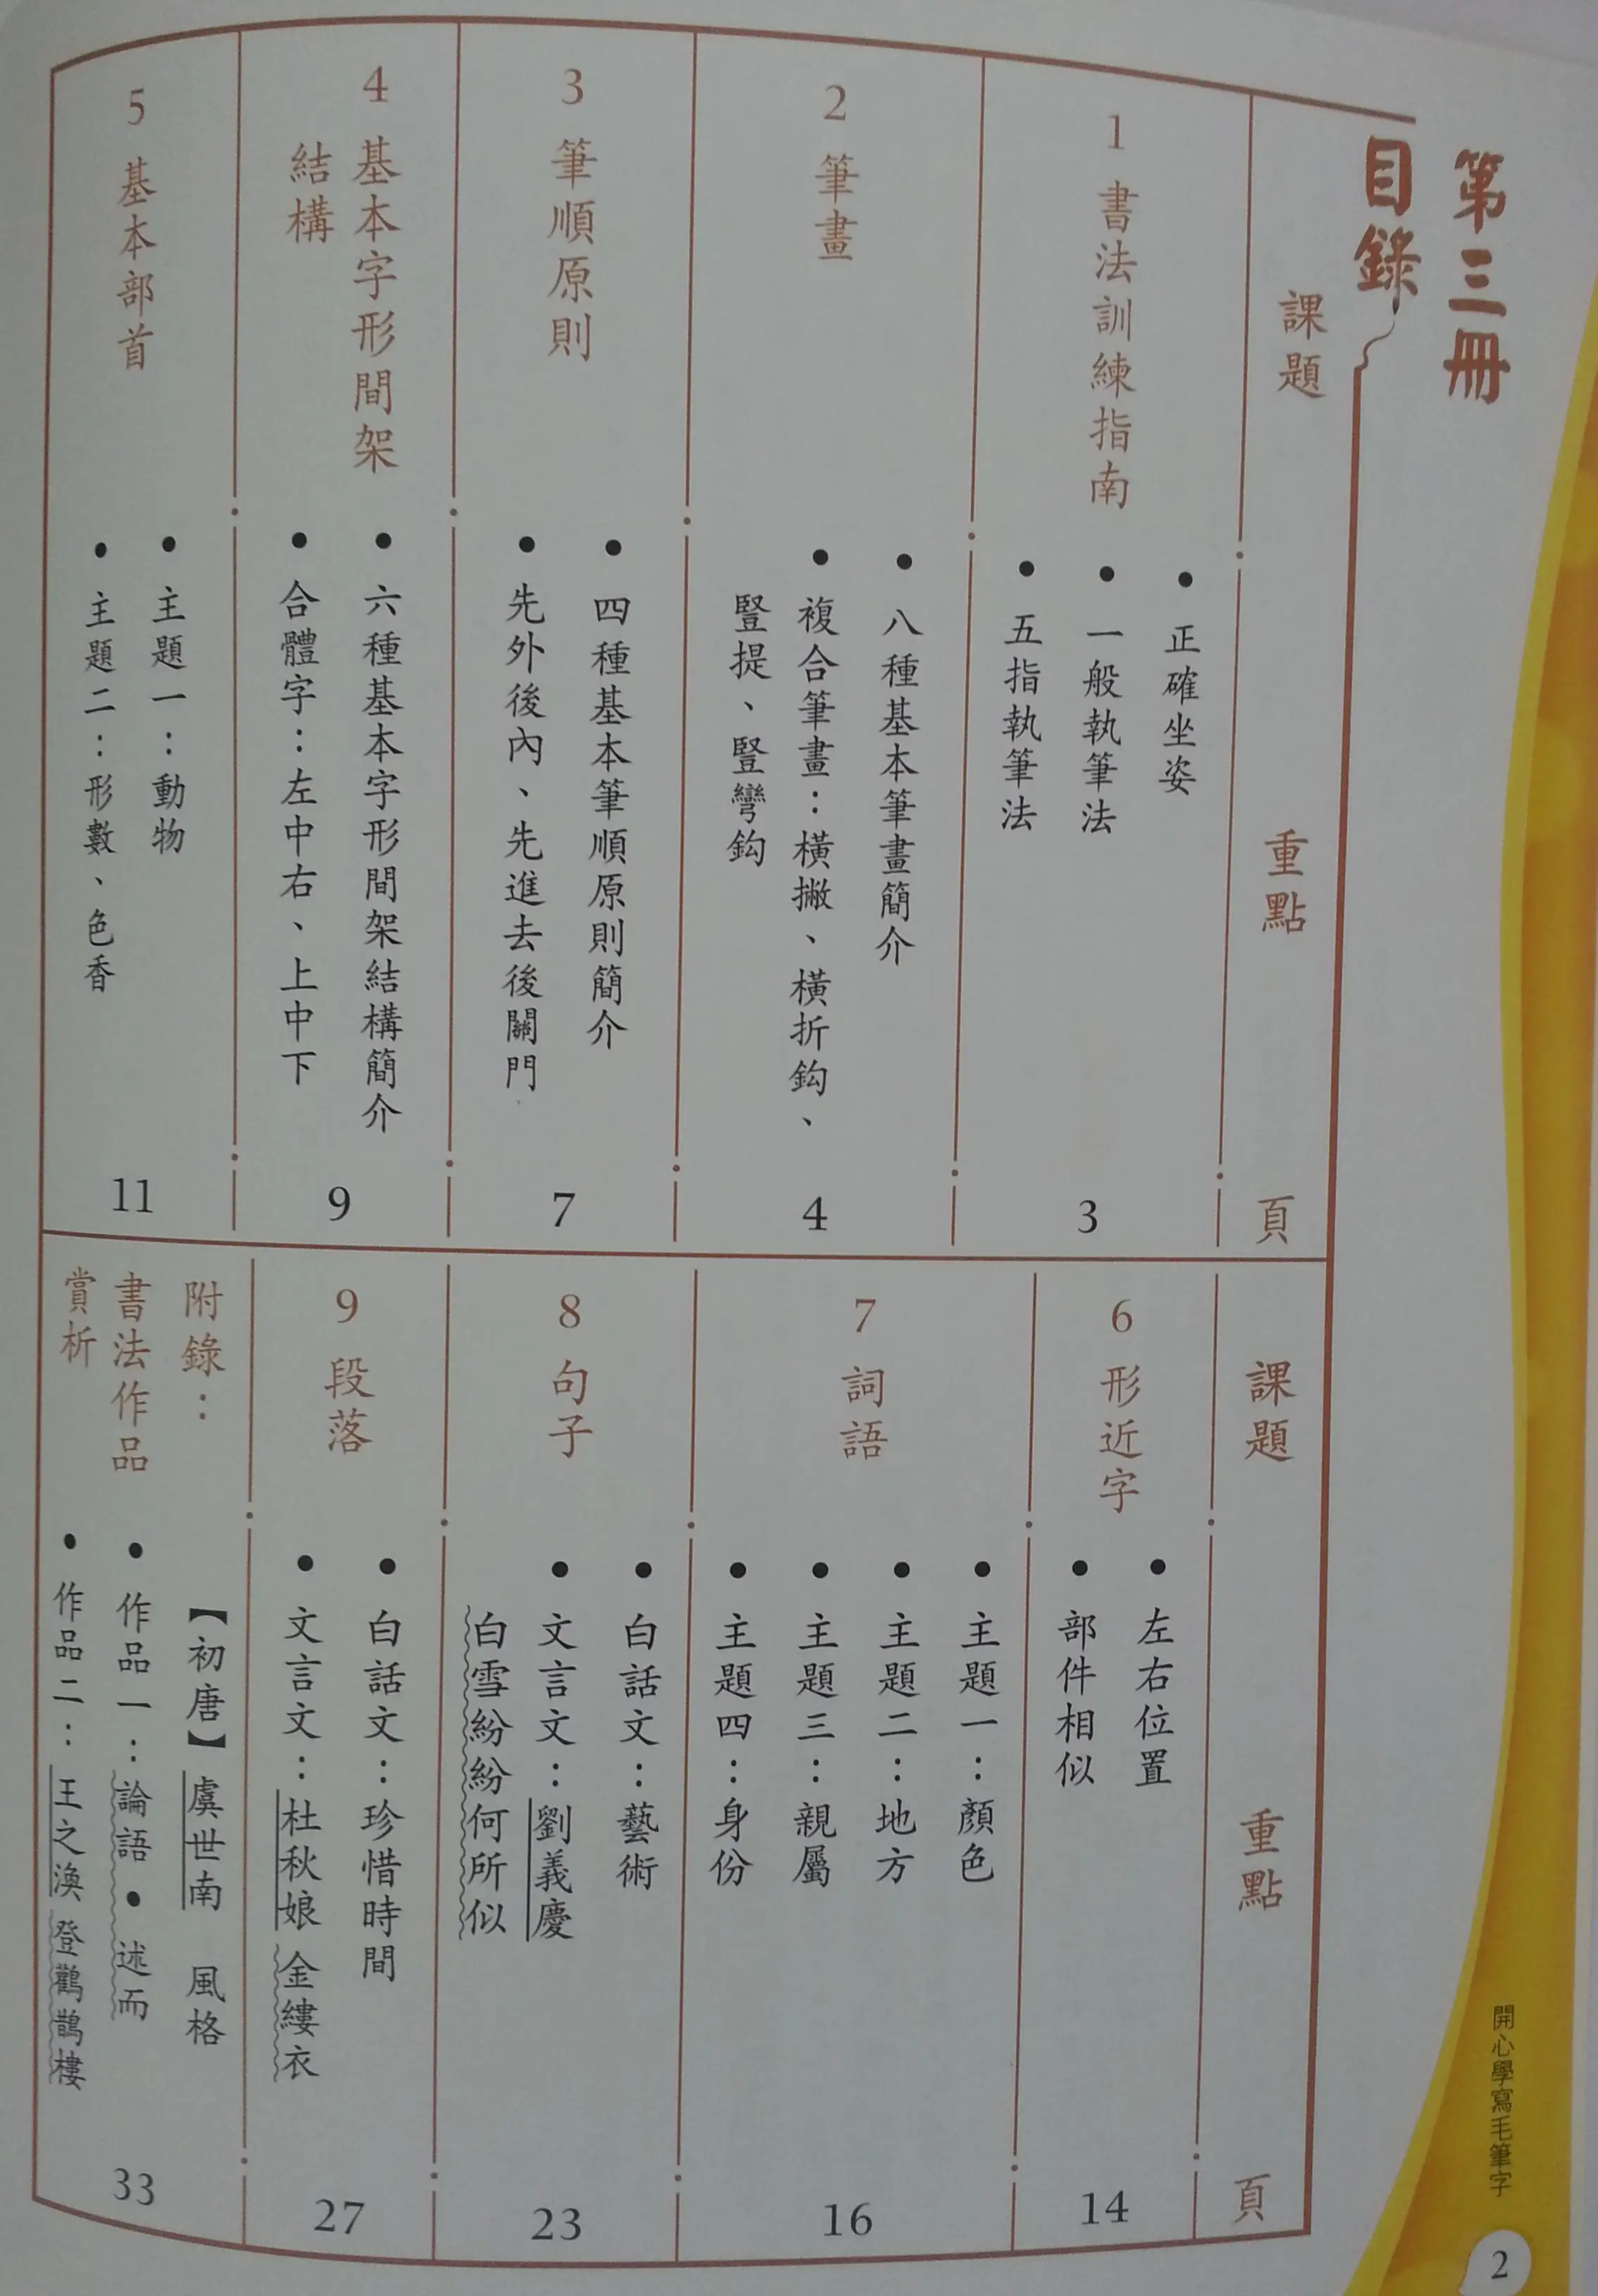 第三冊
目錄
課題
重點
頁
1 書法訓練指南
• 正確坐姿
• 一般執筆法
• 五指執筆法
3
2 筆畫
• 八種基本筆畫簡介
• 複合筆畫：橫撇、橫折鈎、
豎提、豎彎鈎
4
3 筆順原則
• 四種基本筆順原則簡介
• 先外後內、先進去後關門
7
4 基本字形間架
結構
• 六種基本字形間架結構簡介
• 合體字：左中右、上中下
9
5 基本部首
• 主題一：動物
• 主題二：形數、色香
11
課題
重點
頁
6 形近字
• 左右位置
• 部件相似
14
7 詞語
• 主題一：顏色
• 主題二：地方
• 主題三：親屬
• 主題四：身份
16
8 句子
• 白話文：藝術
• 文言文：劉義慶
白雪紛紛何所似
23
9 段落
• 白話文：珍惜時間
• 文言文：杜秋娘 金縷衣
27
附錄：
書法作品
賞析
【初唐】虞世南 風格
• 作品一：論語•述而
• 作品二：王之渙 登鸛鵲樓
33
開心學寫毛筆字
2